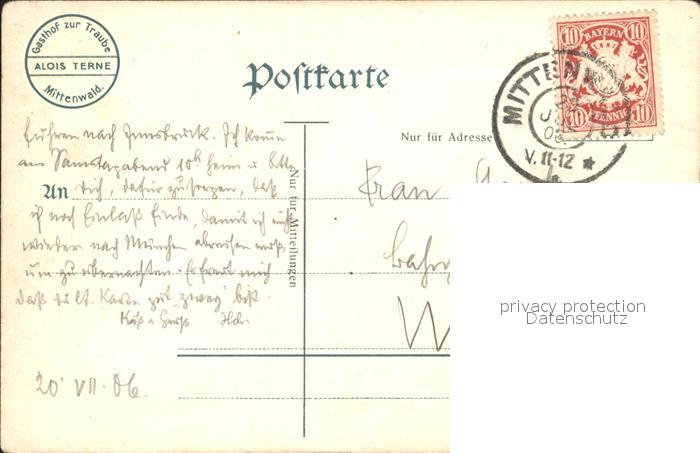 Gasthof zur Traube
ALOIS TERNE
Mittenwald.
Postkarte
BAYERN
10 10
10 PFENNIG 10
MITTENW
V. 11-12
Nur für Adresse
Nur für Mitteilungen
An
fuhren nach Innsbruck. Ich komme
am Samstagabend 10h heim u. bitte
Dich, dafür zu sorgen, daß
ich noch Einlaß finde, damit ich nicht
wieder nach München abreisen muß,
um zu übernachten. Es freut mich
daß Du lt. Karte gut "zweg" bist.
Gruß
20. VII. 06.
Frau
Bahn
W
privacy protection
Datenschutz